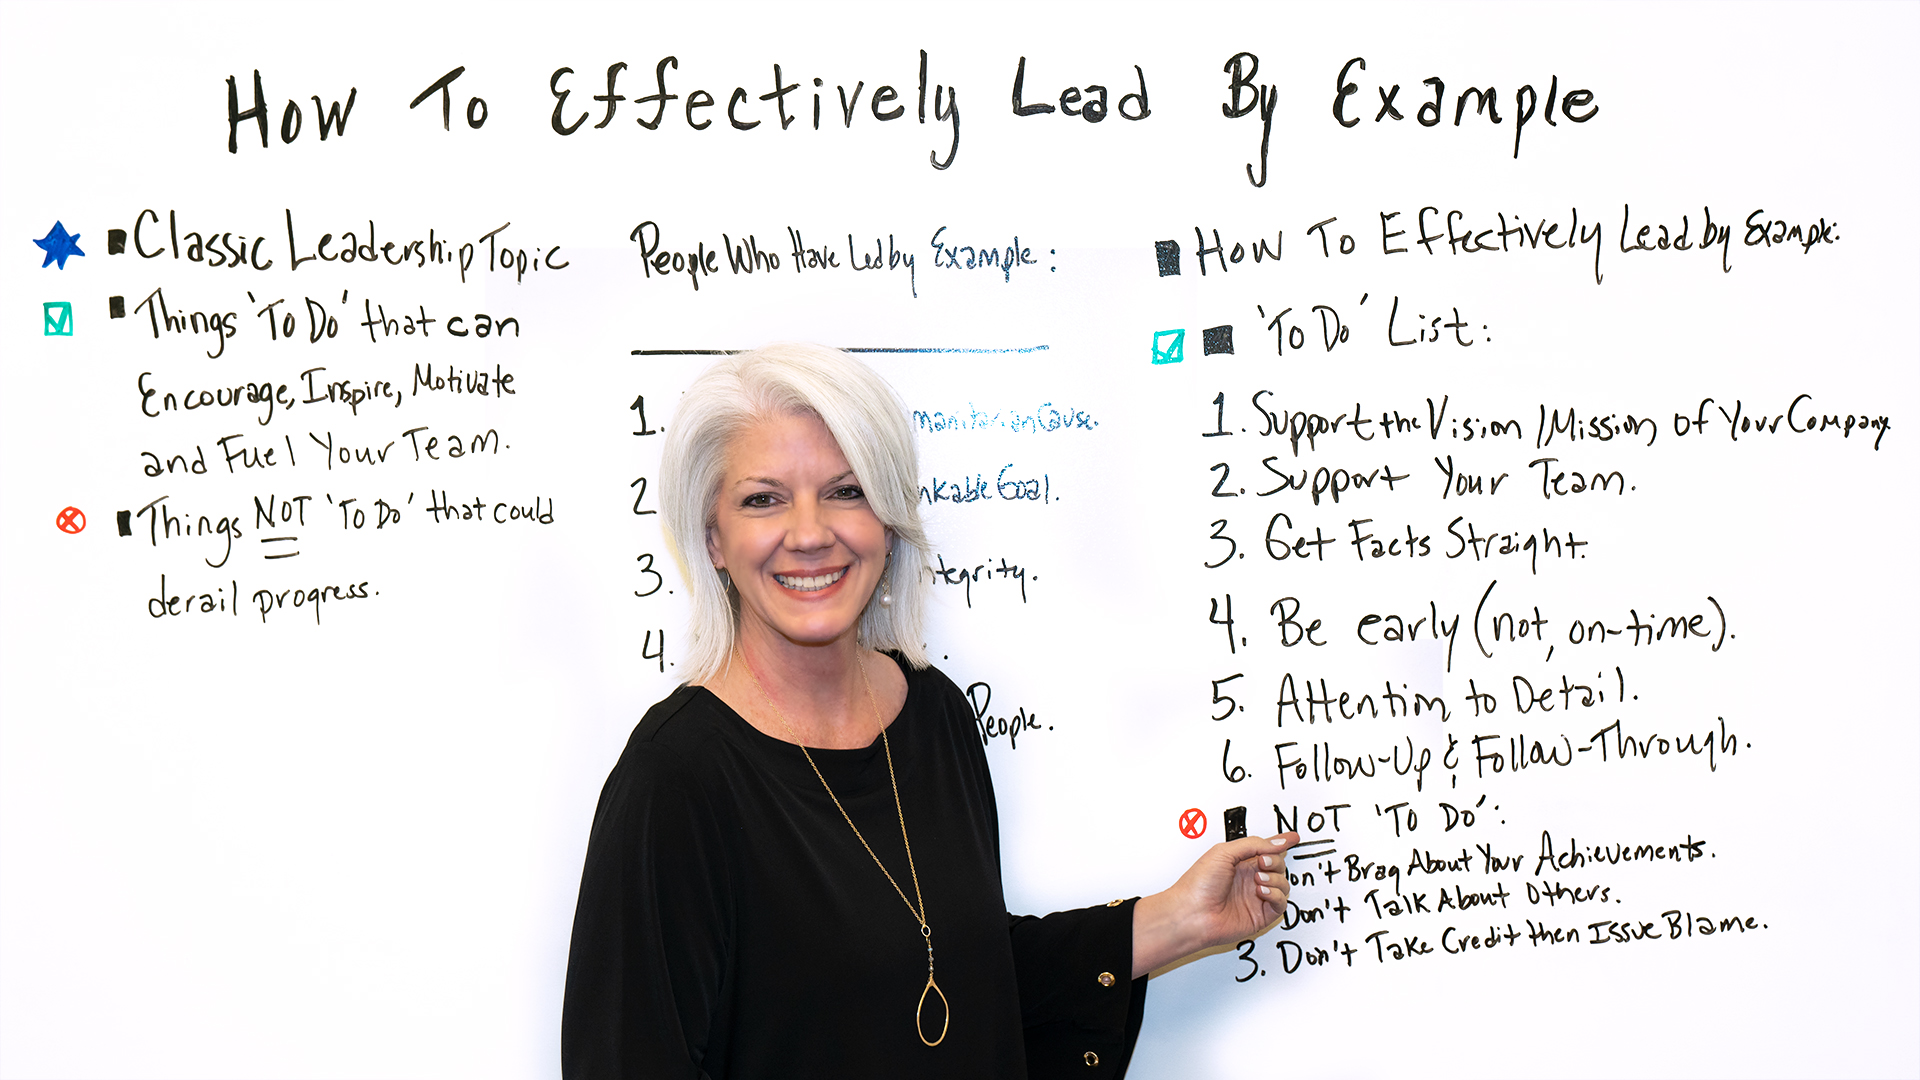 How To Effectively Lead By Example
Classic Leadership Topic
Things 'To Do' that can
Encourage, Inspire, Motivate
and Fuel Your Team.
Things NOT 'To Do' that could
derail progress.
People Who Have Led by Example:
1.
2
Goal.
3.
4.
People.
How To Effectively Lead by Example:
'To Do' List:
1. Support the Vision/Mission of Your Company
2. Support Your Team.
3. Get Facts Straight.
4. Be early (not, on-time).
5. Attention to Detail.
6. Follow-Up & Follow-Through.
NOT 'To Do':
Brag About Your Achievements.
Don't Talk About Others.
3. Don't Take Credit then Issue Blame.